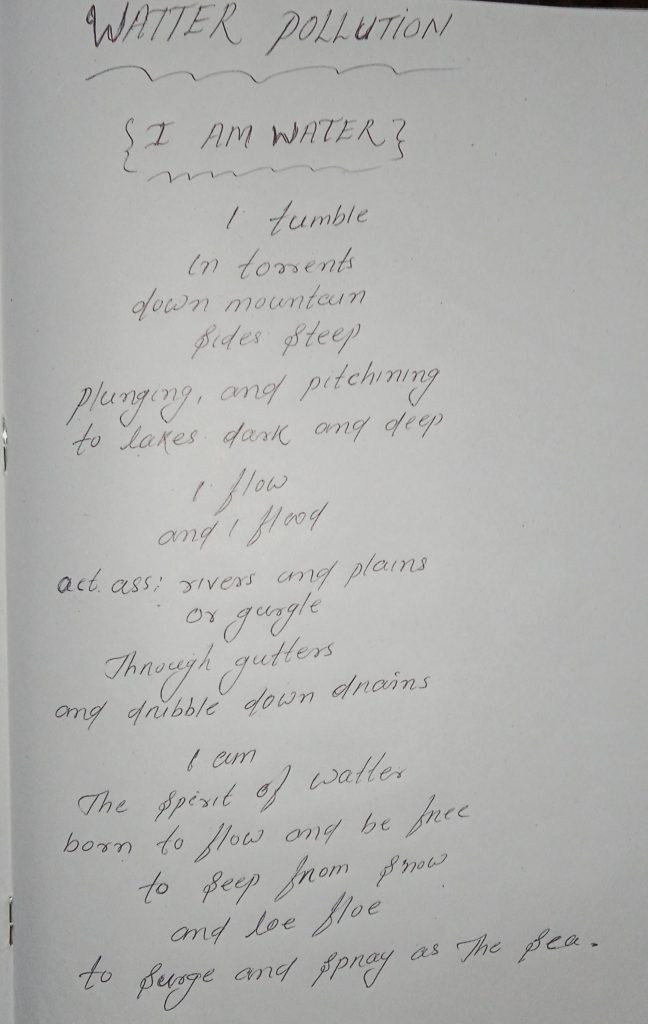 WATTER POLLUTION
{I AM WATER}
I tumble
In torrents
down mountain
Sides Steep
plunging, and pitchining
to lakes dark and deep
I flow
and I flood
act. ass; rivers and plains
or gurgle
Through gutters
and dribble down drains
I am
The Spirit of watter
born to flow and be free
to Seep from Snow
and Ioe floe
to Surge and Spray as The Sea.